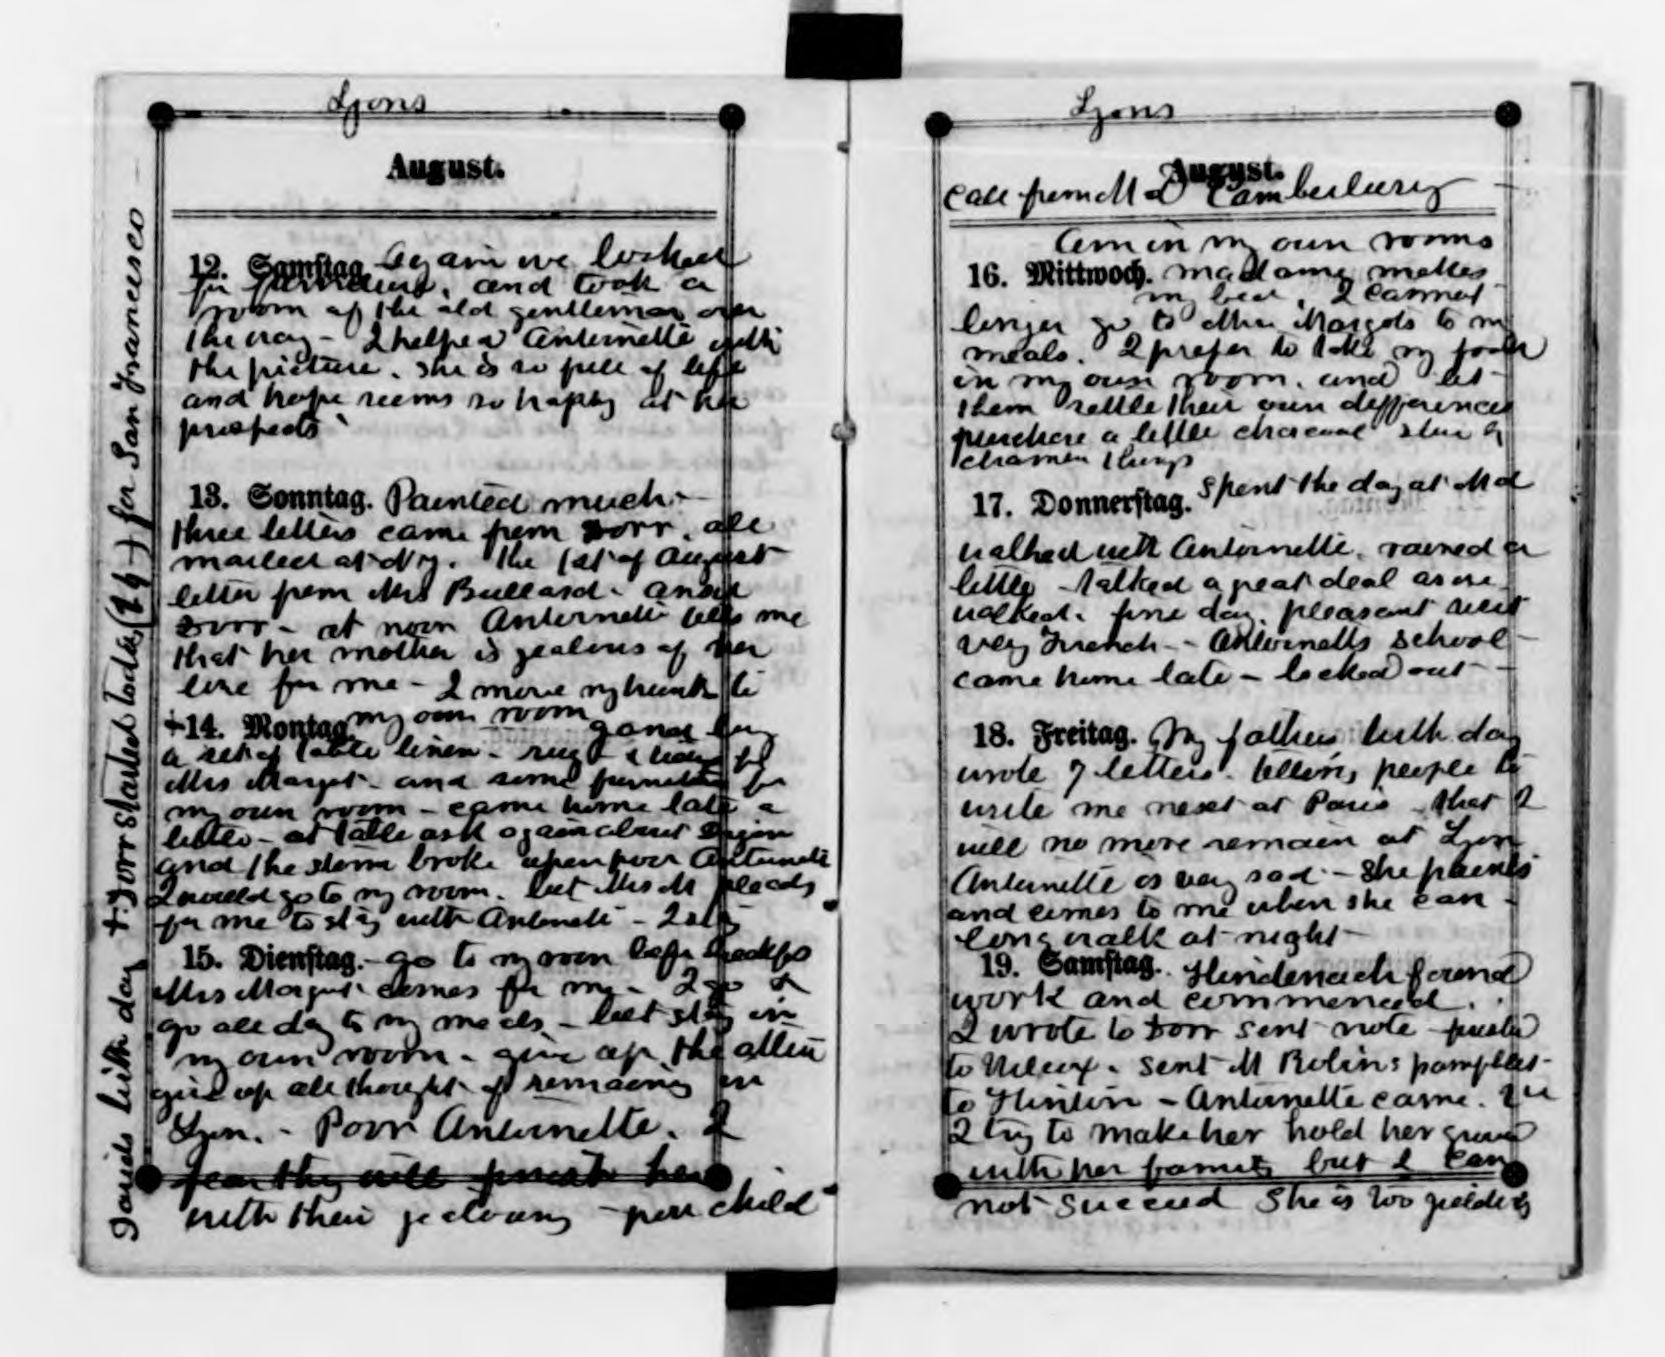 Lyons
August.
12. Samstag Again we looked
for furniture, and took a
room of the old gentleman over
the way - I helped Antoinette with
the picture. she is so full of life
and hope seems so happy at her
prospects
13. Sonntag. Painted much -
three letters came from Dorr, all
mailed at N.Y. the 1st of August
letter from Mrs Bullard.
Dorr - at noon Antoinette tells me
that her mother is jealous of her
love for me - I move my trunk to
+14. Montag my own room go and buy
a set of table linen - rug &
Mrs Margot - and some furniture for
my own room - came home late a
little - at table ask again about Dijon
and the storm broke upon poor Antoinette
I would go to my room. but Mrs M pleads
for me to stay with Antoinette - I stay
15. Dienstag. - go to my room before breakfast
Mrs Margot comes for me - I go &
go all day to my meals - but stay in
my own room - give up the
give up all thought of remaining in
Lyon. - Poor Antoinette. I
fear they will her
with their jealousy - poor child
Davids birth day +. Dorr started today (14) for San Francisco
Lyons
August.
Call from Md
Am in my own rooms
16. Mittwoch. Madame makes
my bed. I cannot
longer go to Mrs Margots to my
meals. I prefer to take my food
in my own room. and let
them settle their own differences
purchase a little charcoal stove &
things
17. Donnerstag. Spent the day at Md
walked with Antoinette. rained a
little - talked a great deal as we
walked. fine day. pleasant visit
very French - - Antoinetts school -
came home late - locked out -
18. Freitag. My fathers birth day
wrote 7 letters. telling people to
write me next at Paris - that I
will no more remain at Lyon
Antoinette is very sad - She paints
and comes to me when she can -
long walk at night -
19. Samstag. found
work and commenced.
I wrote to Dorr sent note
to Wilcox. sent M Rolins pamphlet -
to Hinton - Antoinette came.
I try to make her hold her ground
with her family but I can
not succeed She is too yielding